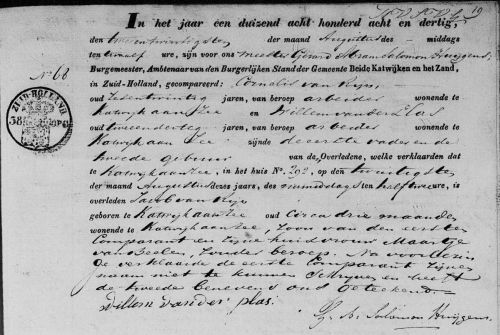 19
In het jaar een duizend acht honderd acht en dertig,
den tweeentwintigsten der maand Augustus des middags
ten twaalf ure, zijn voor ons meester Gerard Abram Solomon Huijgens,
Burgemeester, Ambtenaar van den Burgerlijken Stand der Gemeente Beide Katwijken en het Zand,
No 68
in Zuid-Holland, gecompareerd: Cornelis van Rijn,
oud zesentwintig jaren, van beroep arbeider wonende te
Katwijk aan Zee en Willem van der Plas
oud tweeendertig jaren, van beroep arbeider wonende te
Katwijk aan Zee zijnde de eerste vader en de
tweede gebuur van de Overledene, welke verklaarden dat
te Katwijk aan Zee, in het huis No. 202, op den twintigsten
der maand Augustus dezes jaars, des namiddags ten half twee ure, is
overleden Jacob van Rijn
geboren te Katwijk aan Zee oud circa drie maanden
wonende te Katwijk aan Zee, Zoon van den eersten
Comparant en zijne huisvrouw Maartje
van Beelen, zonder beroep. Na voorlezing
de verklaarde de eerste Comparant zijnen
naam niet te kunnen schrijven en heeft
de tweede benevens ons geteekend
Willem van der plas.
G. A. Solomon Huijgens.
ZUID-HOLLAND